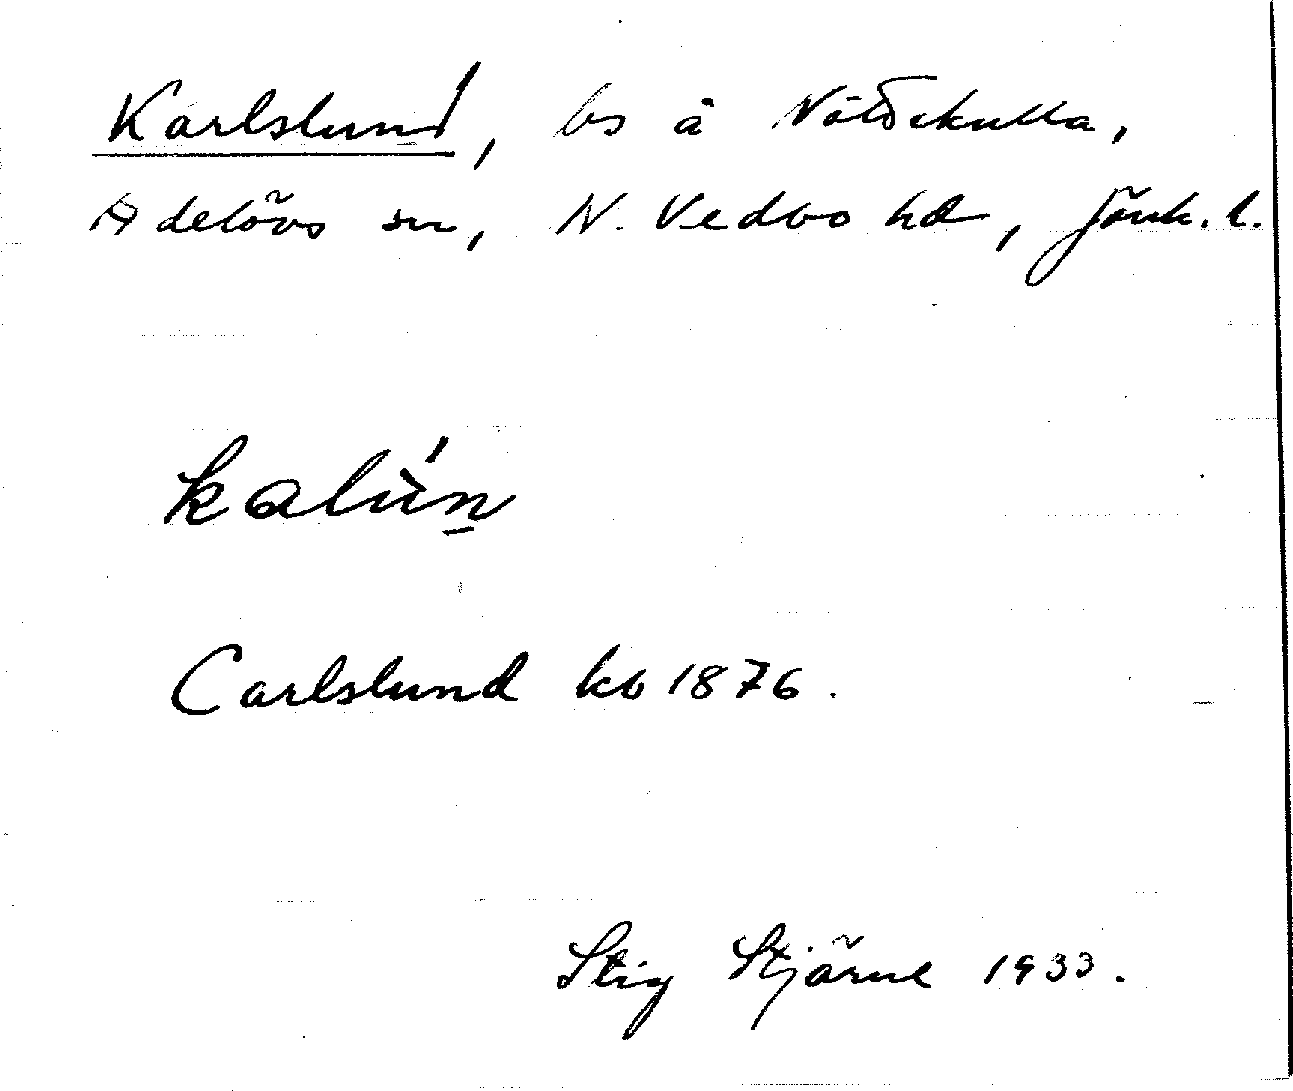 Karlslund, bs å Nöbbekulla,
Adelövs sn, N. Vedbo hd, Jönk. l.
kalun
Carlslund kb 1876.
Stig Stjärne 1933.